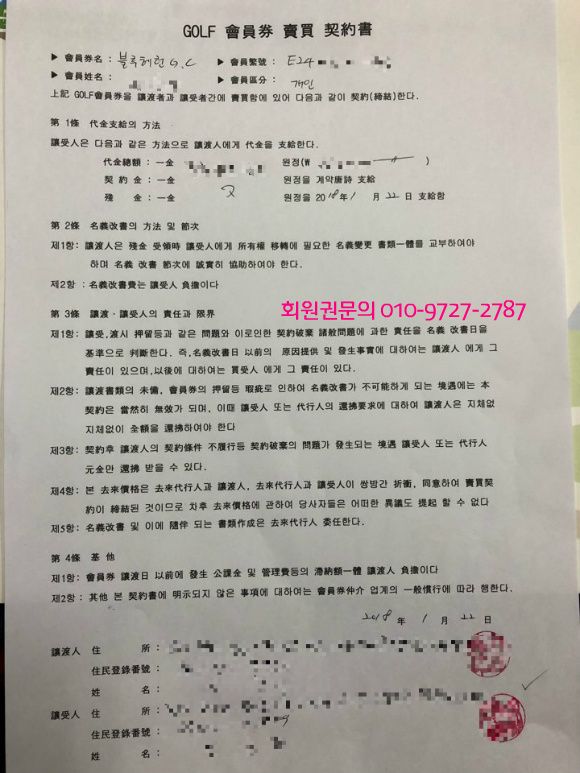 GOLF 會員券 賣買 契約書
▶ 會員券名 : 블루헤런 G.C ▶ 會員繁號 : E24
▶ 會員姓名 : ▶ 會員區分 : 개인
上記 GOLF會員券을 讓渡者과 讓受者간에 賣買함에 있어 다음과 같이 契約(締結)한다.
第 1條 代金支給의 方法
讓受人은 다음과 같은 方法으로 讓渡人에게 代金을 支給한다.
代金總額 : 一金 원정(₩ )
契約金 : 一金 원정을 계약唐詩 支給
殘金 : 一金 원정을 2018年 1月 22日 支給함
第 2條 名義改書의 方法 및 節次
제1항: 讓渡人은 殘金 受領時 讓受人에게 所有權 移轉에 必要한 名義變更 書類一體를 교부하여야
하며 名義 改書 節次에 誠實히 協助하여야 한다.
제2항 : 名義改書費는 讓受人 負擔이다
第 3條 讓渡·讓受人의 責任과 限界
회원권문의 010-9727-2787
제1항: 讓受,渡시 押留등과 같은 問題와 이로인한 契約破棄 諸般問題에 과한 責任을 名義 改書日을
基準으로 判斷한다. 즉,名義改書日 以前의 原因提供 및 發生事實에 대하여는 讓渡人 에게 그
責任이 있으며,以後에 대하여는 買受人 에게 그 責任이 있다.
제2항: 讓渡書類의 未備, 會員券의 押留등 瑕疵로 因하여 名義改書가 不可能하게 되는 境遇에는 本
契約은 當然히 無效가 되며, 이때 讓受人 또는 代行人의 還拂要求에 대하여 讓渡人은 지체없
지체없이 全額을 還拂하여야 한다
제3항: 契約후 讓渡人의 契約條件 不履行등 契約破棄의 問題가 發生되는 境遇 讓受人 또는 代行人
元金만 還拂 받을 수 있다.
제4항: 본 去來價格은 去來代行人과 讓渡人, 去來代行人과 讓受人이 쌍방간 折衝, 同意하여 賣買契
約이 締結된 것이므로 차후 去來價格에 관하여 당사자들은 어떠한 異議도 提起 할 수 없다
제5항: 名義改書 및 이에 隨伴 되는 書類作成은 去來代行人 委任한다.
第 4條 基 他
제1항: 會員券 讓渡日 以前에 發生 公課金 및 管理費등의 滯納額一體 讓渡人 負擔이다
제2항: 其他 본 契約書에 明示되지 않은 事項에 대하여는 會員券仲介 업계의 一般慣行에 따라 행한다.
2018 年 1 月 22 日
讓渡人 住 所 :
住民登錄番號 :
姓 名 :
讓受人 住 所 :
住民登錄番號 :
姓 名 :